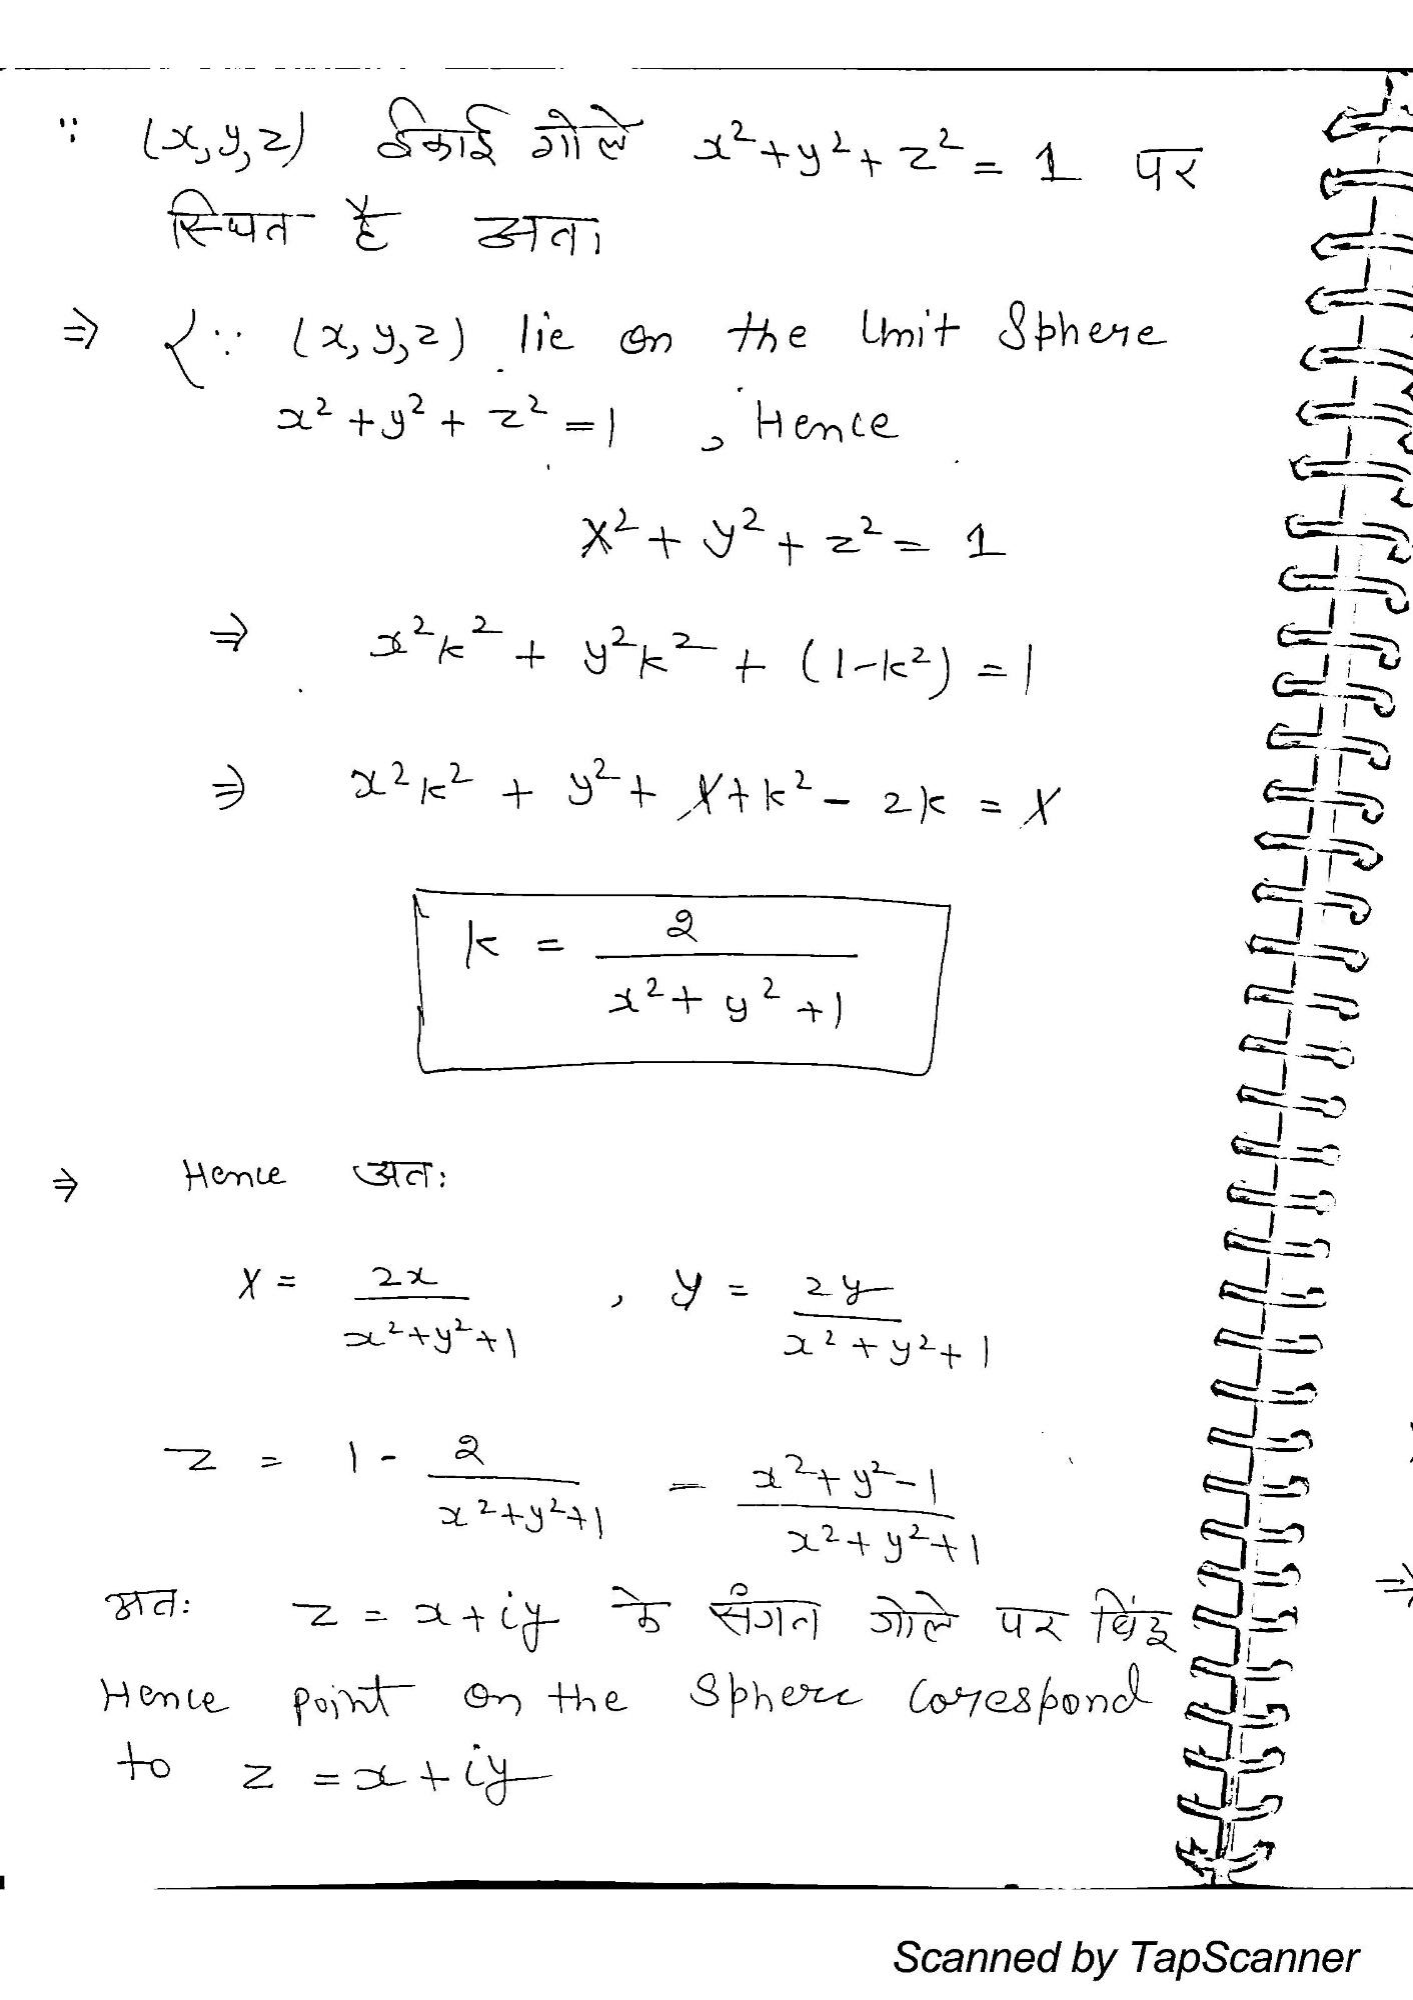 ∵ (x,y,z) ईकाई गोले x²+y²+z² = 1 पर
स्थित है अतः
⇒ {∵ (x,y,z) lie on the Unit Sphere
x²+y²+z²=1 , Hence
X²+y²+z² = 1
⇒ x²k² + y²k² + (1-k²) = 1
⇒ x²k² + y² + 1+k² - 2k = 1
k = 2/(x²+y²+1)
⇒ Hence अतः
X = 2x/(x²+y²+1) , y = 2y/(x²+y²+1)
z = 1 - 2/(x²+y²+1) = (x²+y²-1)/(x²+y²+1)
अतः z = x+iy के संगत गोले पर बिंदु
Hence point on the Sphere Corespond
to z = x+iy
⇒
Scanned by TapScanner